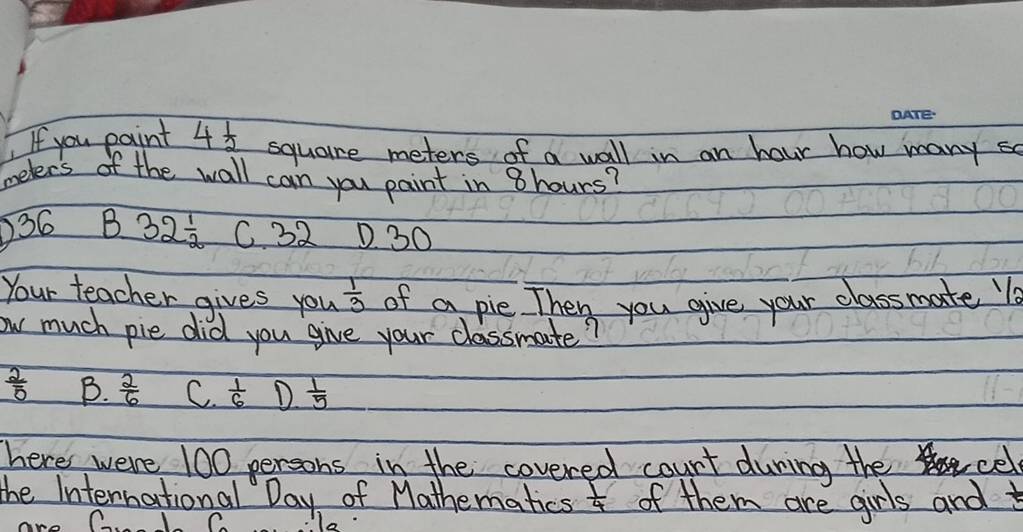 DATE:
If you paint 4 1/2 square meters of a wall in an hour how many
meters of the wall can you paint in 8 hours?
36 B. 32 1/2 C. 32 D. 30
Your teacher gives you 1/3 of a pie. Then you give your classmate 1/2
much pie did you give your classmate?
B. 2/6 C. 1/6 D. 1/5
There were 100 persons in the covered court during the
the International Day of Mathematics 1/4 of them are girls and
are